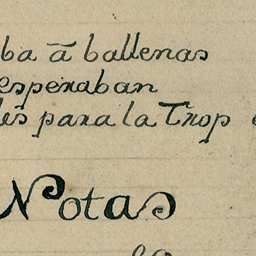 ba á ballenas
esperaban
les para la Trop
Notas